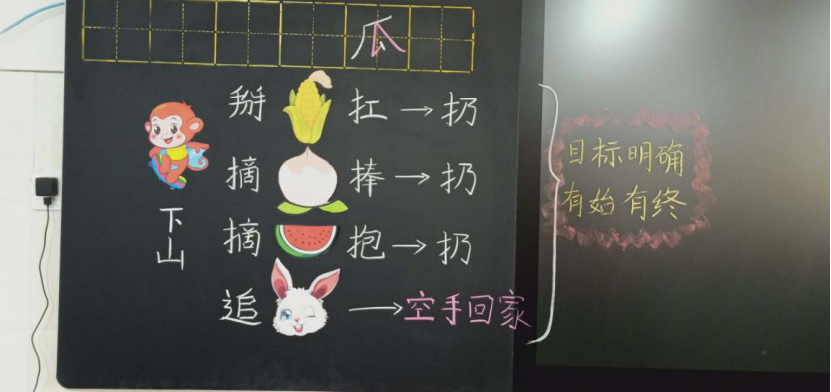 瓜
掰 扛→扔
摘 捧→扔
摘 抱→扔
追 →空手回家
下山
目标明确
有始有终